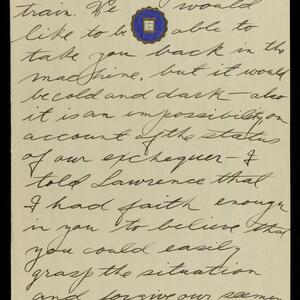 train. We would
like to be able to
take you back in the
machine, but it would
be cold and dark - also
it is an impossibility on
account of the status
of our exchequer - I
told Lawrence that
I had faith enough
in you to believe that
you could easily
grasp the situation
and forgive our seeming